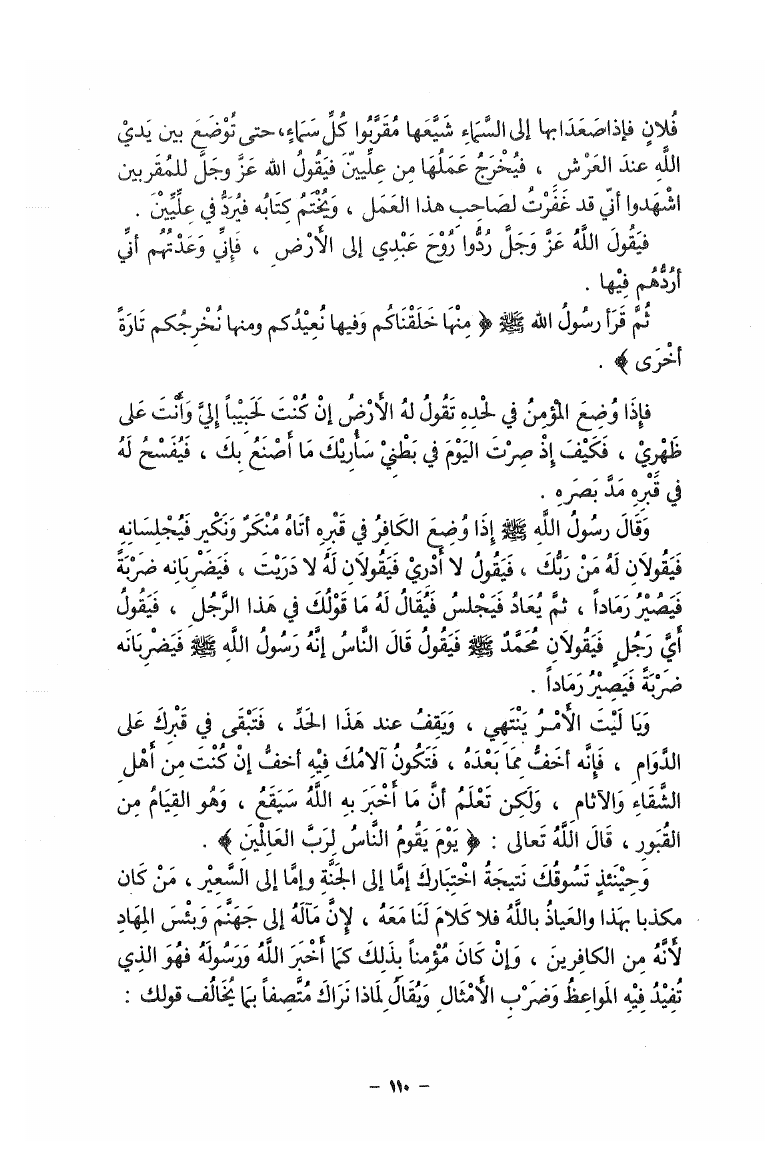 فُلانٍ فإذا صَعَدَا بها إلى السَّمَاءِ شَيَّعَها مُقَرَّبُوا كُلِّ سَمَاءٍ، حتى تُوْضَعَ بين يَديْ
اللَّه عندَ العَرْش ، فيُخْرَجُ عَمَلُهَا مِن عِلِّيينَ فيَقُولُ الله عَزَّ وجَلَّ للمُقَربين
اشْهَدوا أنّي قد غَفَرْتُ لصَاحِبِ هذا العَمَل ، وَيُخْتَمُ كِتَابُه فيُرَدُّ في عِلِّيِّيْنَ .
فيَقُولَ اللَّهُ عَزَّ وَجَلَّ رُدُّوا رُوْحَ عَبْدِي إلى الأَرْضِ ، فَإنِّي وَعَدْتُهُم أنِّي
أرُدُّهُم فِيْها .
ثُمَّ قَرَأَ رسُولُ الله ﷺ ﴿ مِنْهَا خَلَقْنَاكُم وَفيها نُعِيْدُكم ومنها نُخْرِجُكم تَارَةً
أخْرَى ﴾ .
فإِذَا وُضِعَ المُؤمِنُ في لَحْدِهِ تَقُولُ لهُ الأَرْضُ إنْ كُنْتَ لَحَبِيْباً إِليَّ وَأَنْتَ عَلى
ظَهْرِيْ ، فَكَيْفَ إذْ صِرْتَ اليَوْمَ في بَطْنِيْ سَأُرِيْكَ مَا أَصْنَعُ بِكَ ، فَيُفْسْحُ لَهُ
في قَبْرِهِ مَدَّ بَصَرِهِ .
وَقَالَ رسُولُ اللَّهِ ﷺ إذَا وُضِعَ الكَافِرُ في قَبْرِهِ أتَاهُ مُنْكَرٌ وَنَكْيرٌ فَيُجْلِسَانِهِ
فَيَقُولاَنِ لَهُ مَنْ رَبُّكَ ، فَيَقُولُ لا أَدْرِيْ فَيَقُولاَنِ لَهُ لا دَرَيْتَ ، فَيَضْرِبَانِه ضرْبَةً
فَيَصْيْرُ رَمَاداً ، ثمَّ يُعَادُ فَيَجْلسُ فَيُقَالُ لَهُ مَا قَوْلُكَ في هَذا الرَّجُلِ ، فَيَقُولُ
أَيَّ رَجُلٍ فَيَقُولاَنِ مُحَمَّدٌ ﷺ فَيَقُولُ قَالَ النَّاسُ إنَّهُ رَسُولُ اللَّهِ ﷺ فَيَضْرِبَانَه
ضرْبَةً فَيَصِيْرُ رَمَاداً .
وَيَا لَيْتَ الأَمْرُ يَنْتَهِي ، وَيَقِفُ عند هَذَا الحَدِّ ، فَتَبْقَى في قَبْرِكَ عَلى
الدَّوَامِ ، فَإنَّه أخَفُّ مِمَا بَعْدَهُ ، فَتَكُونُ آلامُكَ فِيْه أخَفُّ إنْ كُنْتَ مِن أَهْلِ
الشَّقَاءِ وَالآثامِ ، وَلَكِن تَعْلَمُ أنَّ مَا أَخْبَرَ بهِ اللَّهُ سَيَقَعُ ، وَهُو القِيَامُ مِن
القُبُورِ ، قَالَ اللَّهُ تَعالى : ﴿ يَوْمَ يَقُومُ النَّاسُ لِرَبِّ العَالَمِيْنَ ﴾ .
وَحِيْنَئذٍ تَسُوقُكَ نَتِيجَةُ اخْتِبَارِكَ إمَّا إلى الجَنَّةِ وإمَّا إلى السَّعِيْرِ ، مَنْ كَان
مكذبا بهَذا والعَياذُ باللَّهُ فلا كلامَ لَنَا مَعَهُ ، لإِنَّ مَآلَهُ إلى جَهَنَّمَ وَبِئْسَ المِهَادِ
لأنَّهُ مِن الكافِرينَ ، وَإنْ كَانَ مُؤْمِناً بذَلِكَ كَمَا أخْبَرَ اللَّهُ وَرَسُولَهُ فهُوَ الذِي
تُفِيْدُ فيْهِ المَواعِظُ وَضَرْبِ الأمْثَالِ وَيُقَالُ لِمَاذَا نَرَاكَ مُتَّصِفاً بَمَا يُخَالُف قولك :
- ١١٠ -